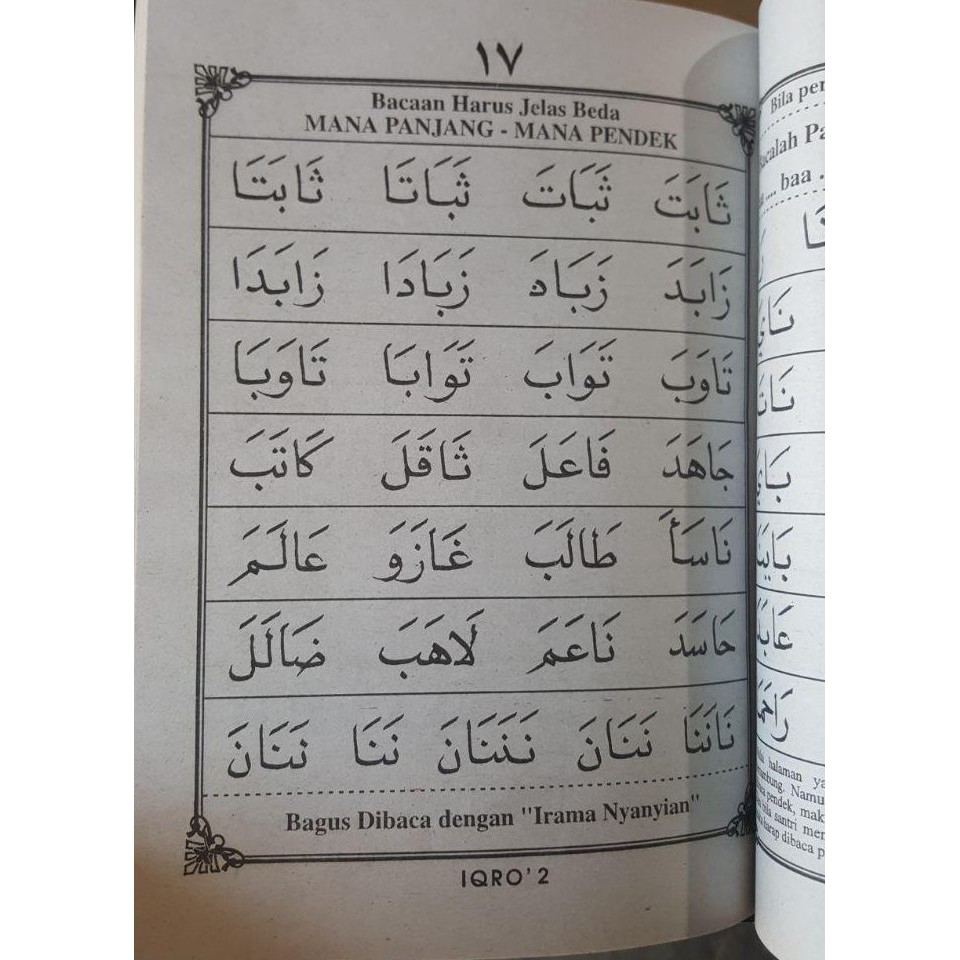 ١٧
Bacaan Harus Jelas Beda
MANA PANJANG - MANA PENDEK
ثَابَتَ ثَبَاتَ ثَبَاتَا ثَابَتَا
زَابَدَ زَبَادَ زَبَادَا زَابَدَا
تَاوَبَ تَوَابَ تَوَابَا تَاوَبَا
جَاهَدَ فَاعَلَ ثَاقَلَ كَاتَبَ
نَاسَأَ طَالَبَ غَازَوَ عَالَمَ
حَاسَدَ نَاعَمَ لَاهَبَ ضَالَلَ
نَانَنَا نَنَانَ نَنَنَانَ نَنَا نَنَانَ
Bagus Dibaca dengan "Irama Nyanyian"
IQRO' 2
Bila per
Bacalah Pa
.... baa .
نَاتَ
بَايَنَ
عَابَدَ
halaman ya
Namu
pendek, mak
bila santri men
harap dibaca p